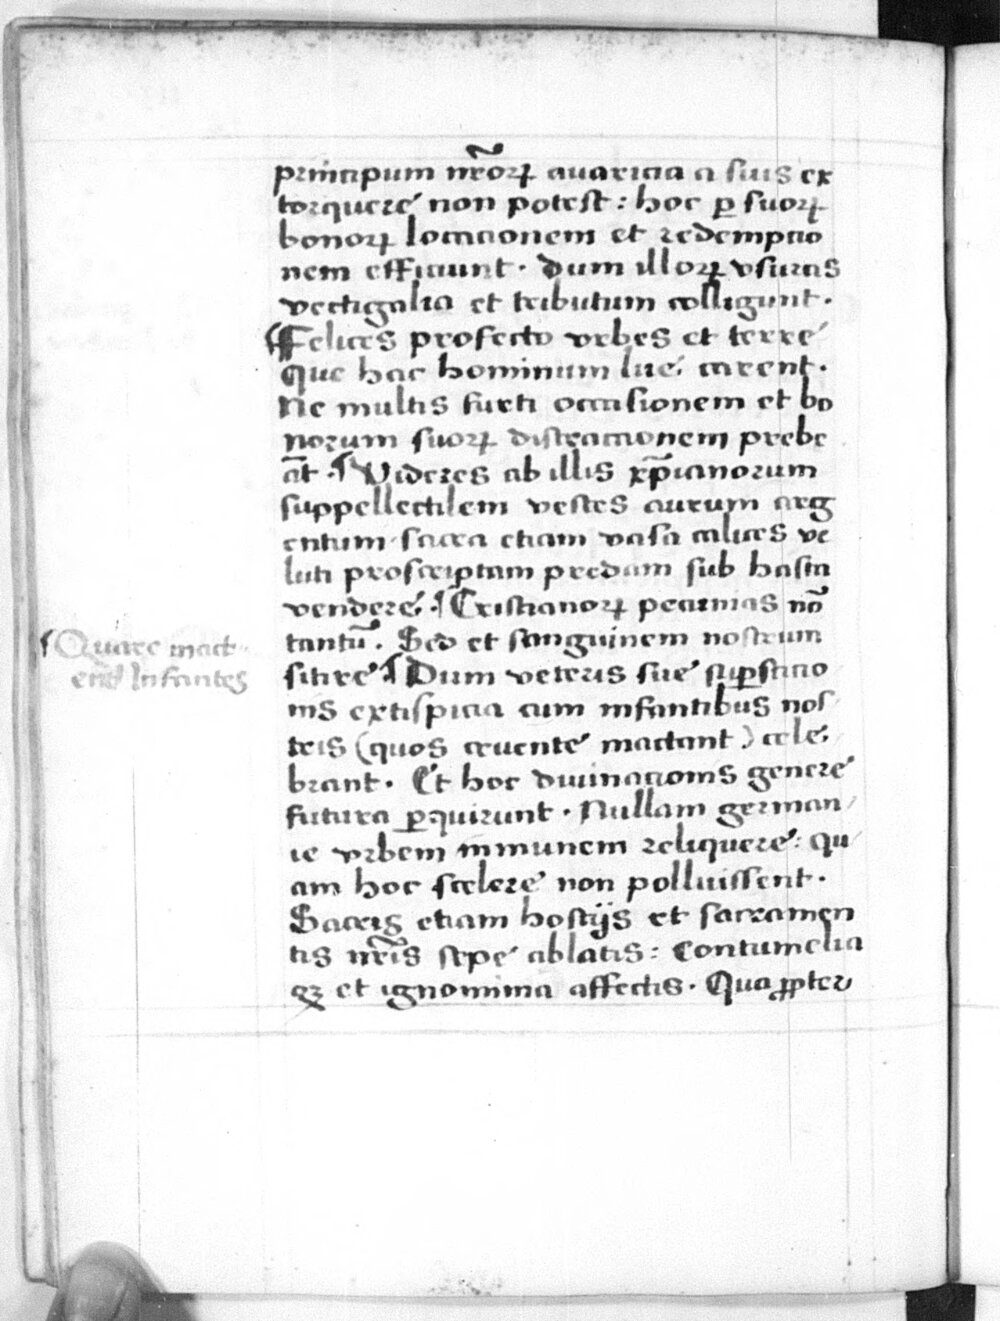 principum nr̃oꝝ auaricia a suis ex
torquere non potest : hoc ꝑ suoꝝ
bonoꝝ locacionem et redempcio
nem efficiunt · dum illoꝝ vsuras
vectigalia et tributum colligunt ·
¶ Felices profecto vrbes et terre
Que hac hominum lue carent ·
Ne multis furti occasionem et bo
norum suoꝝ distractionem prebe
āt · ¶ Videres ab illis xp̃ianorum
suppellectilem vestes aurum arg
entum · sacra etiam vasa calices ve
luti proscriptam predam sub hasta
vendere · ¶ Cristianoꝝ pecunias nō
tantū · Sed et sanguinem nostrum
sitire ¶ Dum veteris sue suꝑsticio
nis extispicia cum infantibus nos
tris (quos cruente mactant) cele
brant · Et hoc diuinacionis genere
futura ꝑquirunt · Nullam german
ie vrbem inmunem reliquere : qu
am hoc scelere non polluissent ·
Sacris etiam hostijs et sacramen
tis nr̃is sepe ablatis : Contumelia
qꝫ et ignominia affectis · Qua ꝓpter
¶ Quare mact
ent Infantes